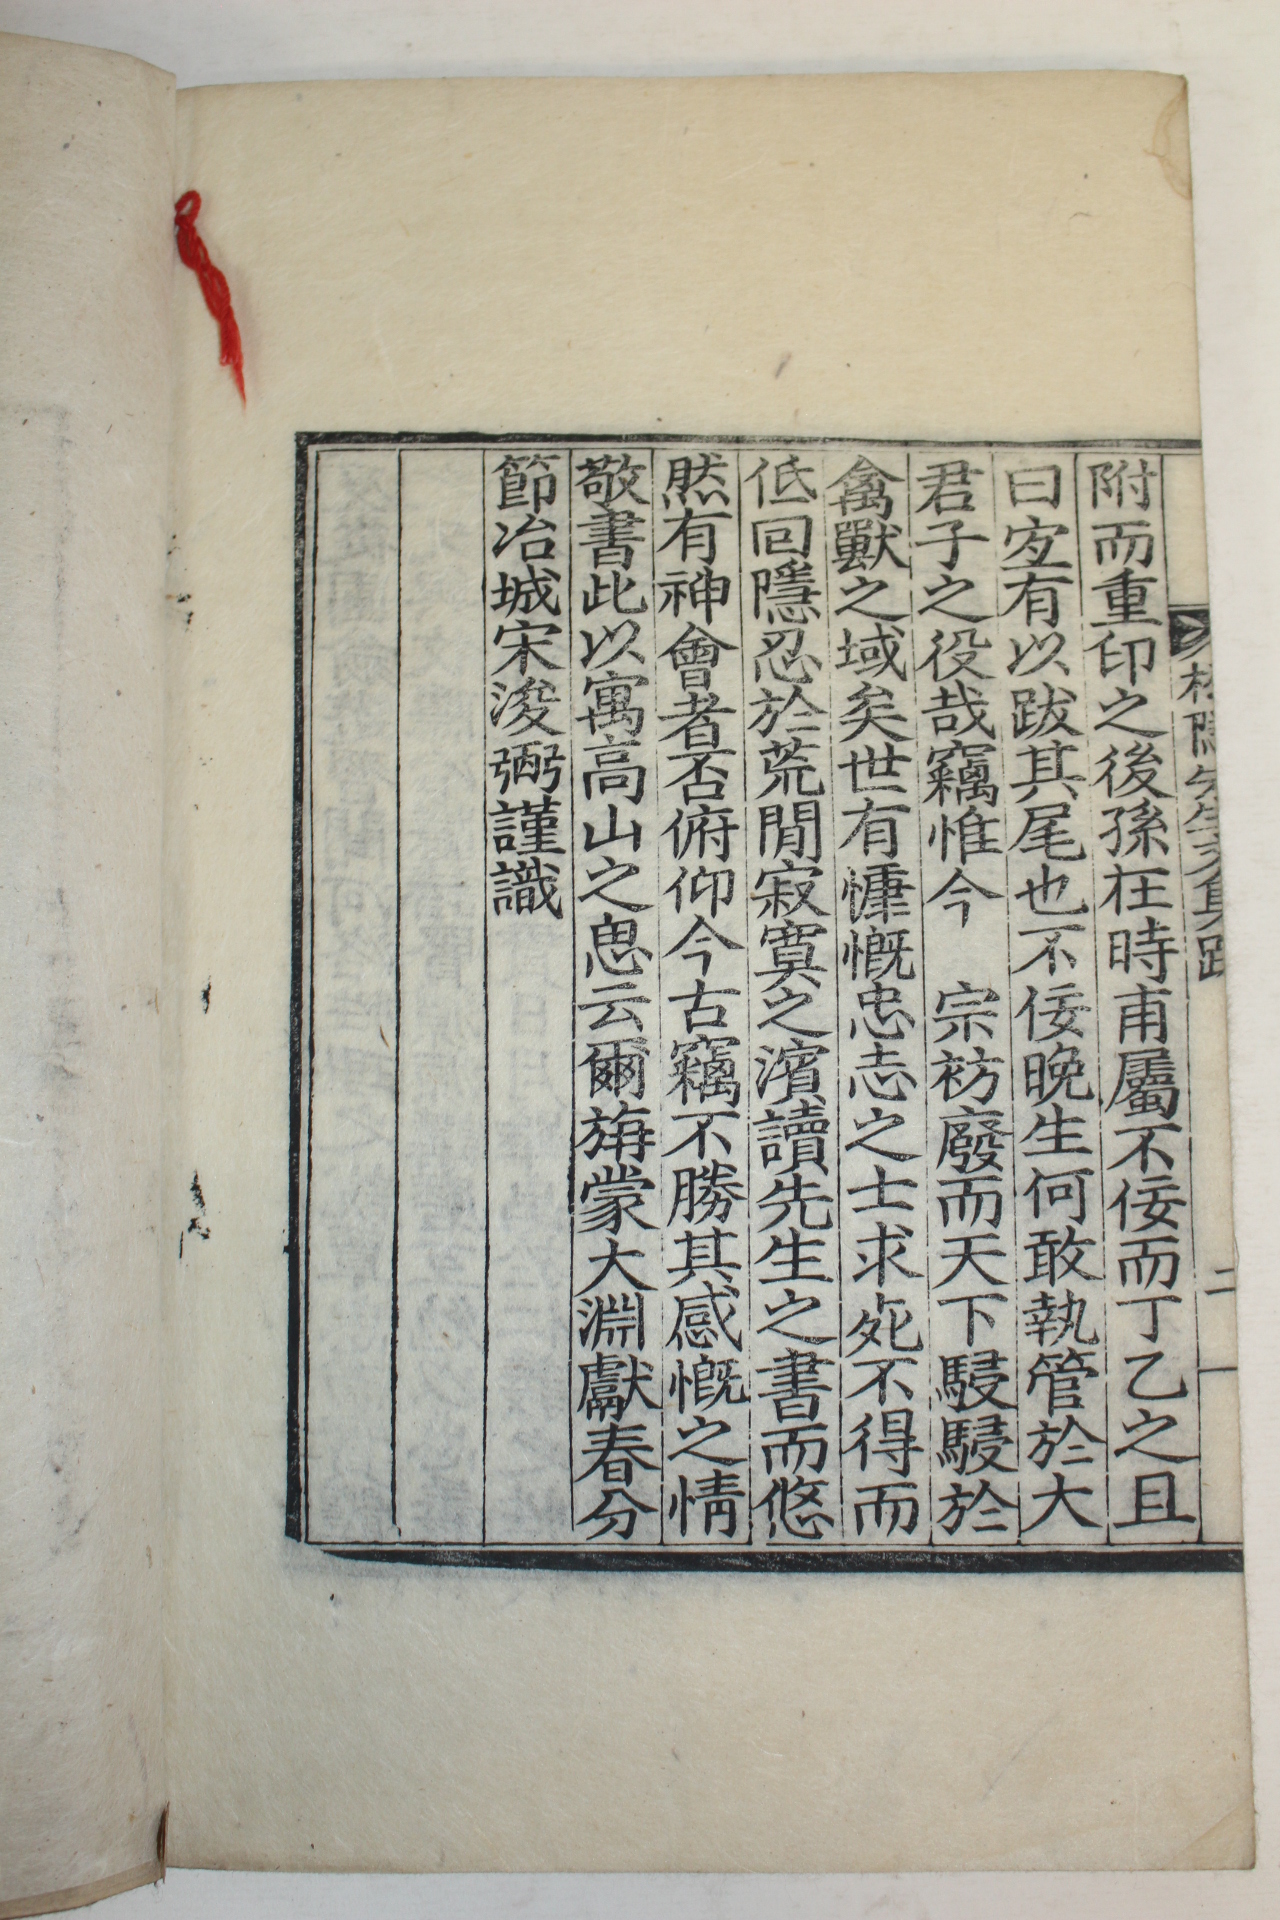 附而重印之後孫在時甫屬不佞而丁乙之且
曰㝎有以跋其尾也不佞晚生何敢執管於大
君子之役哉竊惟今　宗祊廢而天下駸駸於
禽獸之域矣世有慷慨忠志之士求死不得而
低回隱忍於荒閒寂寞之濱讀先生之書而悠
然有神會者否俯仰今古竊不勝其感慨之情
敬書此以寓高山之思云爾旃蒙大淵獻春分
節冶城宋浚弼謹識
隱先生文集跋
二